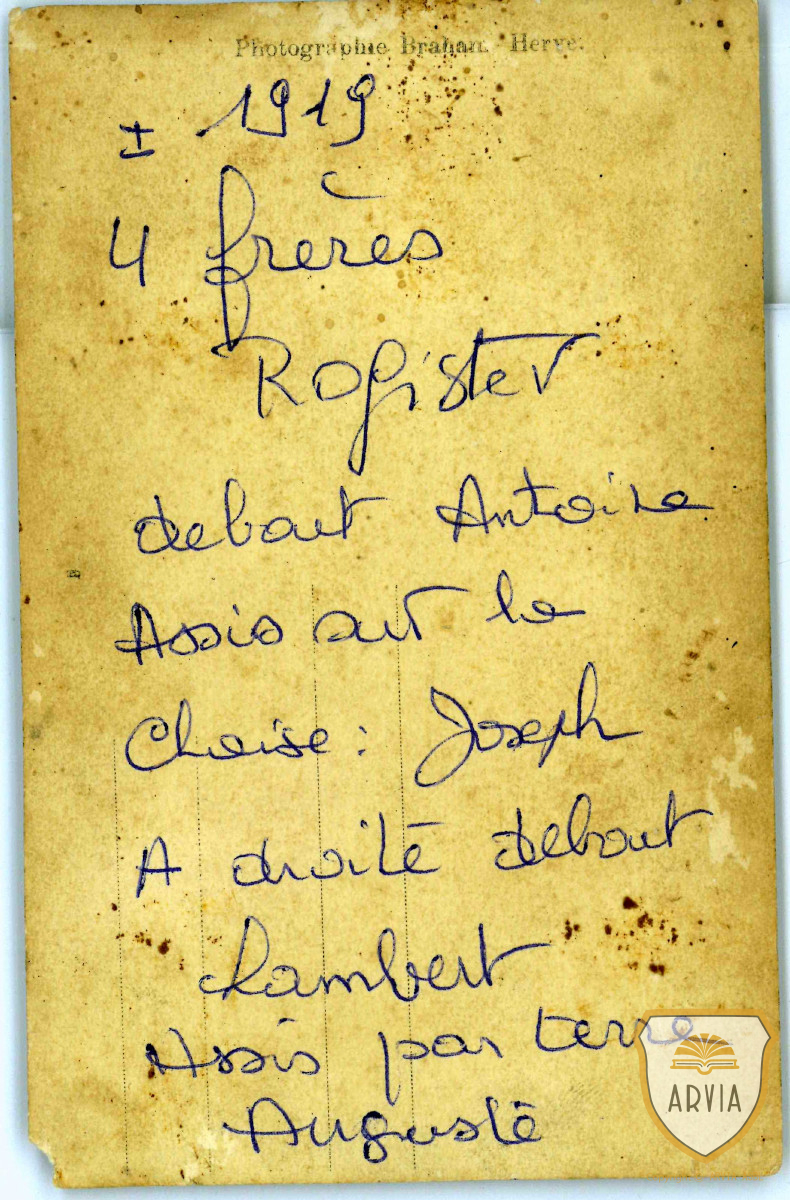 Photographie Brahan. Herve.
± 1919
4 frères
Rogister
debout Antoine
Assis sur la
Chaise : Joseph
A droite debout
Lambert
Assis par terre
Auguste
ARVIA